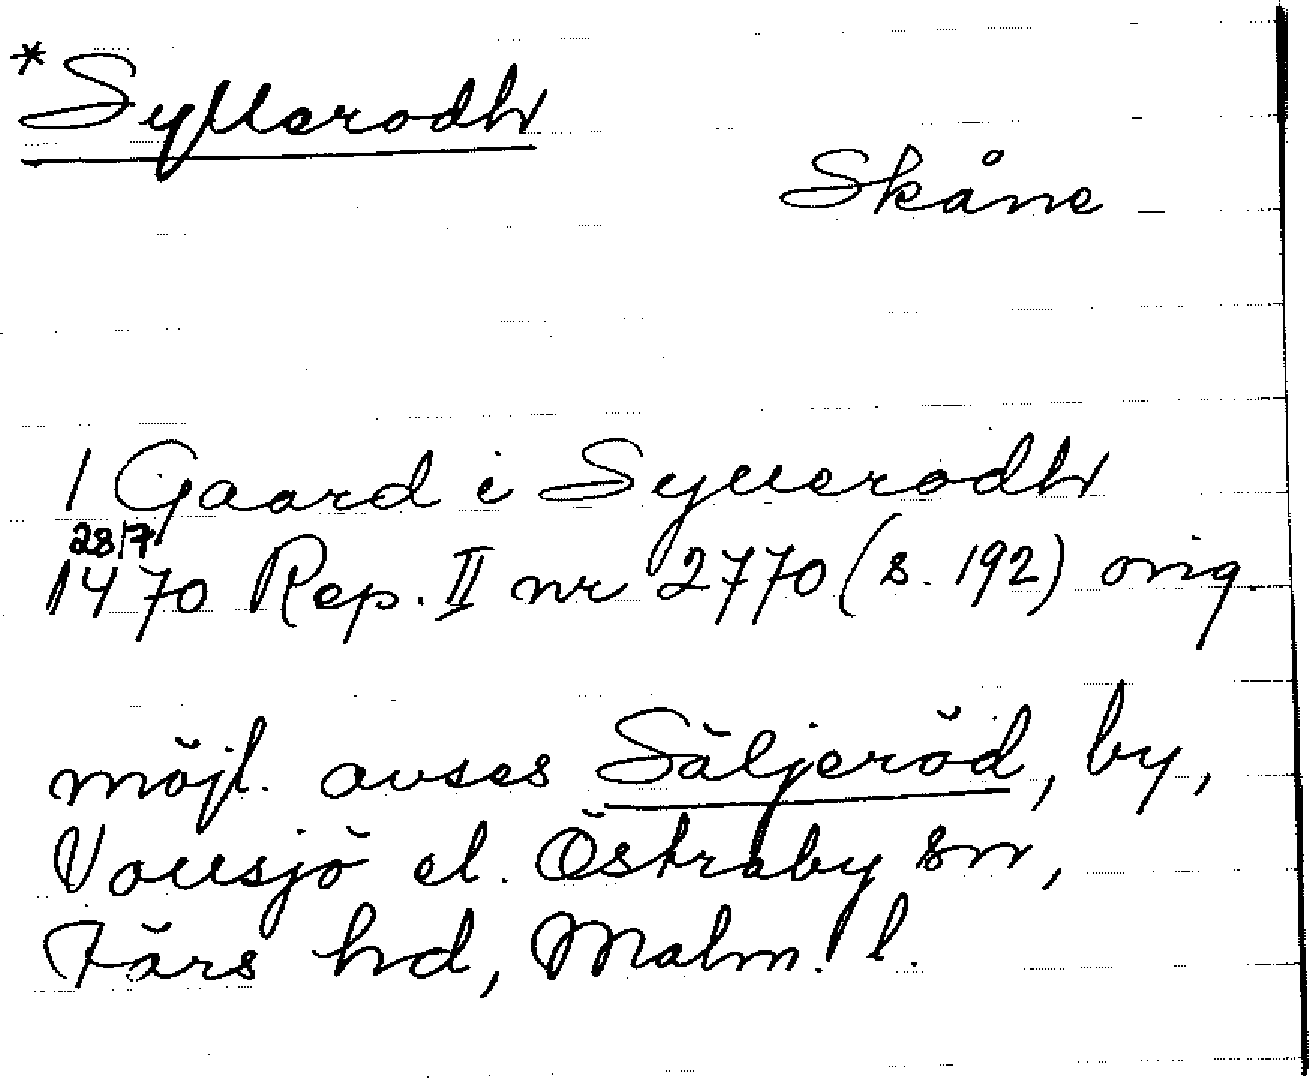 *Syllerodh
Skåne
1 Gaard i Syllerodh
28/7
1470 Rep. II nr 2770 (s. 192) orig.
möjl. avses Säljeröd, by,
Vollsjö el. Östraby sn,
Färs hd, Malm. l.